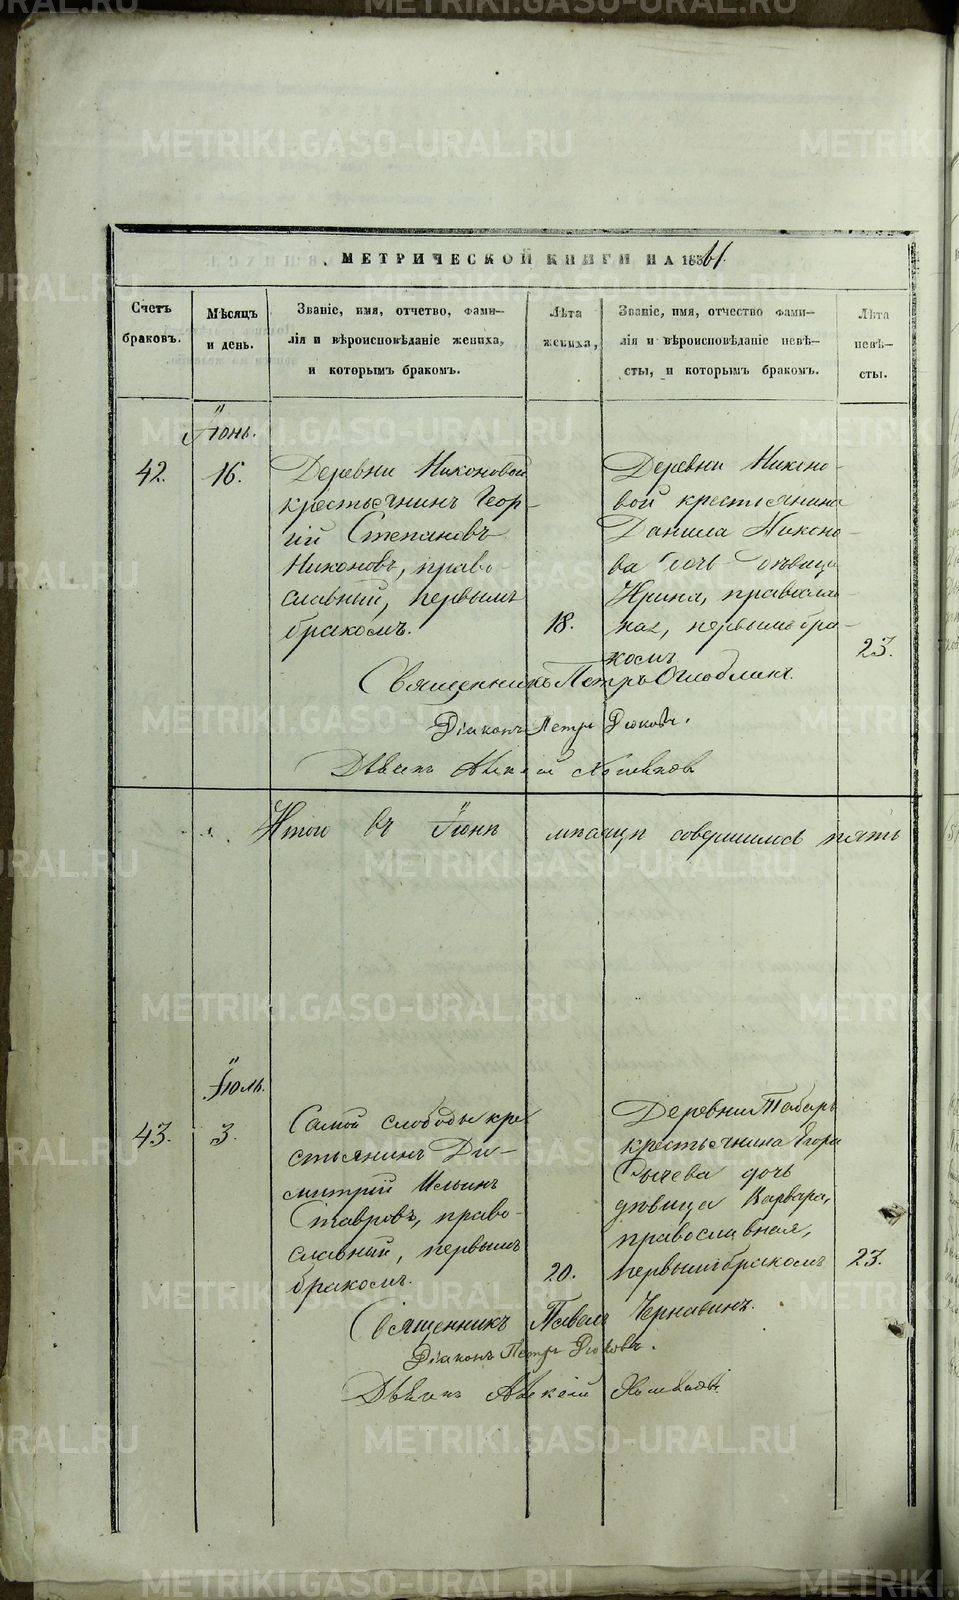 МЕТРИЧЕСКОЙ КНИГИ НА 1861
Счетъ браковъ.
Мѣсяцъ и день.
Званіе, имя, отчетво, фами-
лія и вѣроисповѣданіе жениха,
и которымъ бракомъ.
Лѣта жениха,
Званіе, имя, отчество фами-
лія и вѣроисповѣданіе невѣ-
сты, и которымъ бракомъ.
Лѣта невѣ-
сты.
Іюнь.
42.
16.
Деревни Никоновой
крестьянинъ Геор-
гій Степановъ
Никоновъ, право-
славный, первымъ
бракомъ.
18.
Деревни Никоно-
вой крестьянина
Данила Никоно-
ва дочь дѣвица
Ирина, православ-
ная, первымъ бра-
комъ
23.
Священникъ Петръ Оглоблинъ.
Діаконъ Петръ Дюковъ.
Дьячекъ Алексій
Итого въ Іюнѣ мѣсяцѣ совершилось пять
Іюль.
43.
3.
Самой слободы кре
стьянинъ Ди-
митрій Ильинъ
Ставровъ, право-
славный, первымъ
бракомъ.
20.
Деревни Табаръ
крестьянина Егора
Сычева дочь
дѣвица Варвара,
православная,
первымъ бракомъ
23.
Священникъ Павелъ Чернавинъ.
Діаконъ Петръ Дюковъ.
Дьячекъ Алексій
METRIKI.GASO-URAL.RU